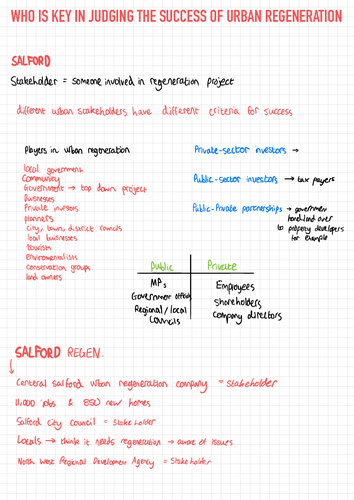 WHO IS KEY IN JUDGING THE SUCCESS OF URBAN REGENERATION
SALFORD
Stakeholder = someone involved in regeneration project
different urban stakeholders have different criteria for success
Players in urban regeneration
local government
Community
Government → top down project
Businesses
Private investors
planners
city, town, district councils
local businesses
tourists
environmentalists
conservation groups
land owners
Private-sector investors →
Public-sector investors → tax payers
Public-Private partnerships → government
hand land over
to property developers
for example
Public Private
MPs Employees
Government officials Shareholders
Regional/local Company directors
Councils
SALFORD REGEN.
↓
Centeral salford urban regeneration company = stakeholder
11,000 jobs & 8500 new homes
Salford city council = Stakeholder
Locals → think it needs regeneration → aware of issues
North West Regional Development Agency = Stakeholder